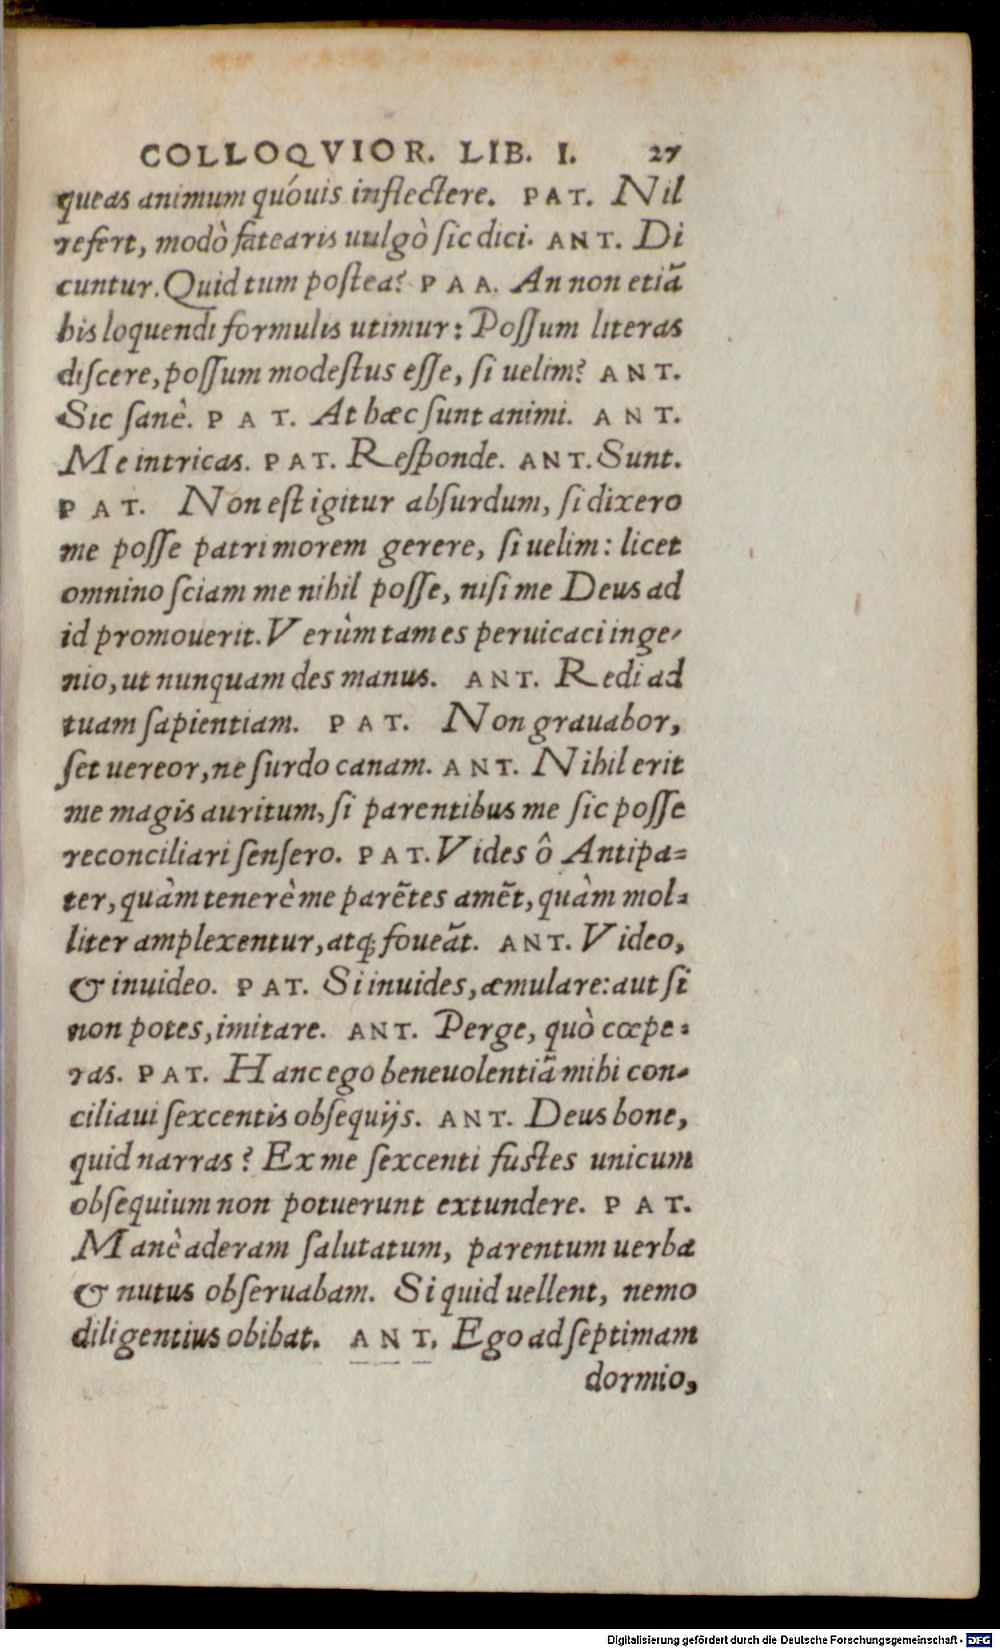 COLLOQVIOR. LIB. I. 27
queas animum quóuis inflectere. PAT. Nil
refert, modò fatearis uulgò sic dici. ANT. Di
cuntur. Quid tum postea? PAA. An non etiã
his loquendi formulis utimur: Possum literas
discere, possum modestus esse, si uelim? ANT.
Sic sanè. PAT. At hæc sunt animi. ANT.
Me intricas. PAT. Responde. ANT. Sunt.
PAT. Non est igitur absurdum, si dixero
me posse patri morem gerere, si uelim: licet
omnino sciam me nihil posse, nisi me Deus ad
id promouerit. Verùm tam es peruicaci inge-
nio, ut nunquam des manus. ANT. Redi ad
tuam sapientiam. PAT. Non grauabor,
set uereor, ne surdo canam. ANT. Nihil erit
me magis auritum, si parentibus me sic posse
reconciliari sensero. PAT. Vides ô Antipa=
ter, quàm tenerè me parẽtes amẽt, quàm mol=
liter amplexentur, atq; foueãt. ANT. Video,
& inuideo. PAT. Si inuides, æmulare: aut si
non potes, imitare. ANT. Perge, quò cœpe=
ras. PAT. Hanc ego beneuolentiã mihi con-
ciliaui sexcentis obsequijs. ANT. Deus bone,
quid narras? Ex me sexcenti fustes unicum
obsequium non potuerunt extundere. PAT.
Manè aderam salutatum, parentum uerba
& nutus obseruabam. Si quid uellent, nemo
diligentius obibat. ANT. Ego ad septimam
dormio,
Digitalisierung gefördert durch die Deutsche Forschungsgemeinschaft - DFG